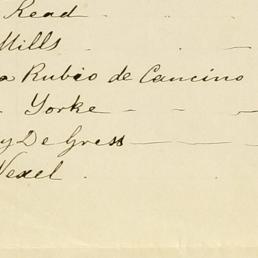 Read
Mills
a Rubio de Cancino
Yorke
y De Gress
Nexel